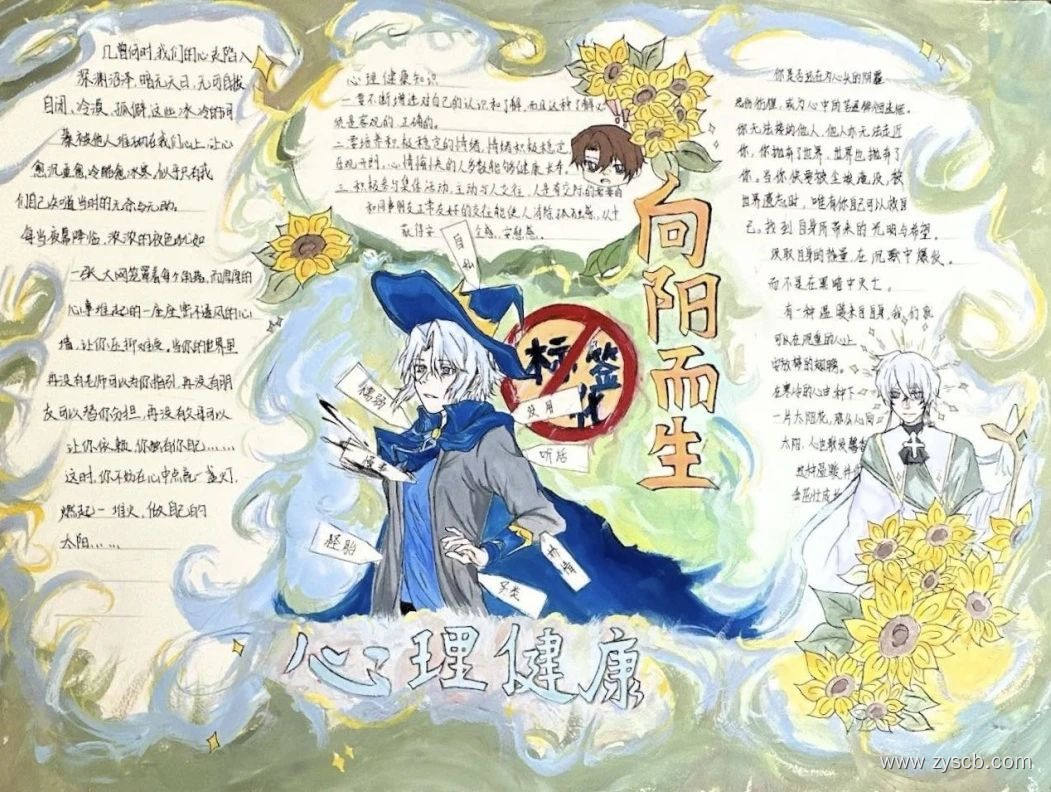 几曾何时,我们的心灵陷入
深渊沼泽,暗无天日,无可自拔
自闭,冷漠,孤僻这些冰冷的词
被他人堆砌在我们心上,让心
愈沉重愈冷酷愈冰寒,似乎只有我
们自己知道当时的无奈与无助。
每当夜幕降临,浓浓的夜色犹如
一张大网笼罩着每个角落,而厚厚的
心事堆起的一座座密不透风的心
墙,让你在抑难受,当你的世界里
再没有老师可以为你指引,再没有朋
友可以替你分担,再没有父母可以
让你依赖,你唯有你自己……
这时,你不妨在心中点亮一盏灯,
燃起一堆火,做自己的
太阳……
心理健康知识
一要不断增进对自己的认识和了解,而且这种了解
是客观的 正确的。
二要培养积极稳定的情绪,情绪积极稳定
乐观开朗,心情愉快的人多数能够健康长寿。
三积极参与集体活动,主动与人交往,人是有交际的需要的
和同事朋友正常友好的交往能使人消除孤独感,从中
获得安全感、安慰感。
向阳而生
自私
标签化
懦弱
双月
听话
怪胎
另类
心理健康
你是否还在为心头的阴霾
悲伤彷徨,
你无法接纳他人,他人亦无法走近
你,你抛弃了世界,世界也抛弃了
你,当你快要被尘埃淹没,被
世界遗忘时,唯有你自己可以救自
己,找到自身所带来的光明与希望,
汲取自身的热量,在沉默中爆发,
而不是在黑暗中灭亡。
有一种温暖来自自身,我们
可以在沉重的心上
安放轻的翅膀,
在寒冷的心中种下
一片太阳花,
太阳,人也
www.zyscb.com